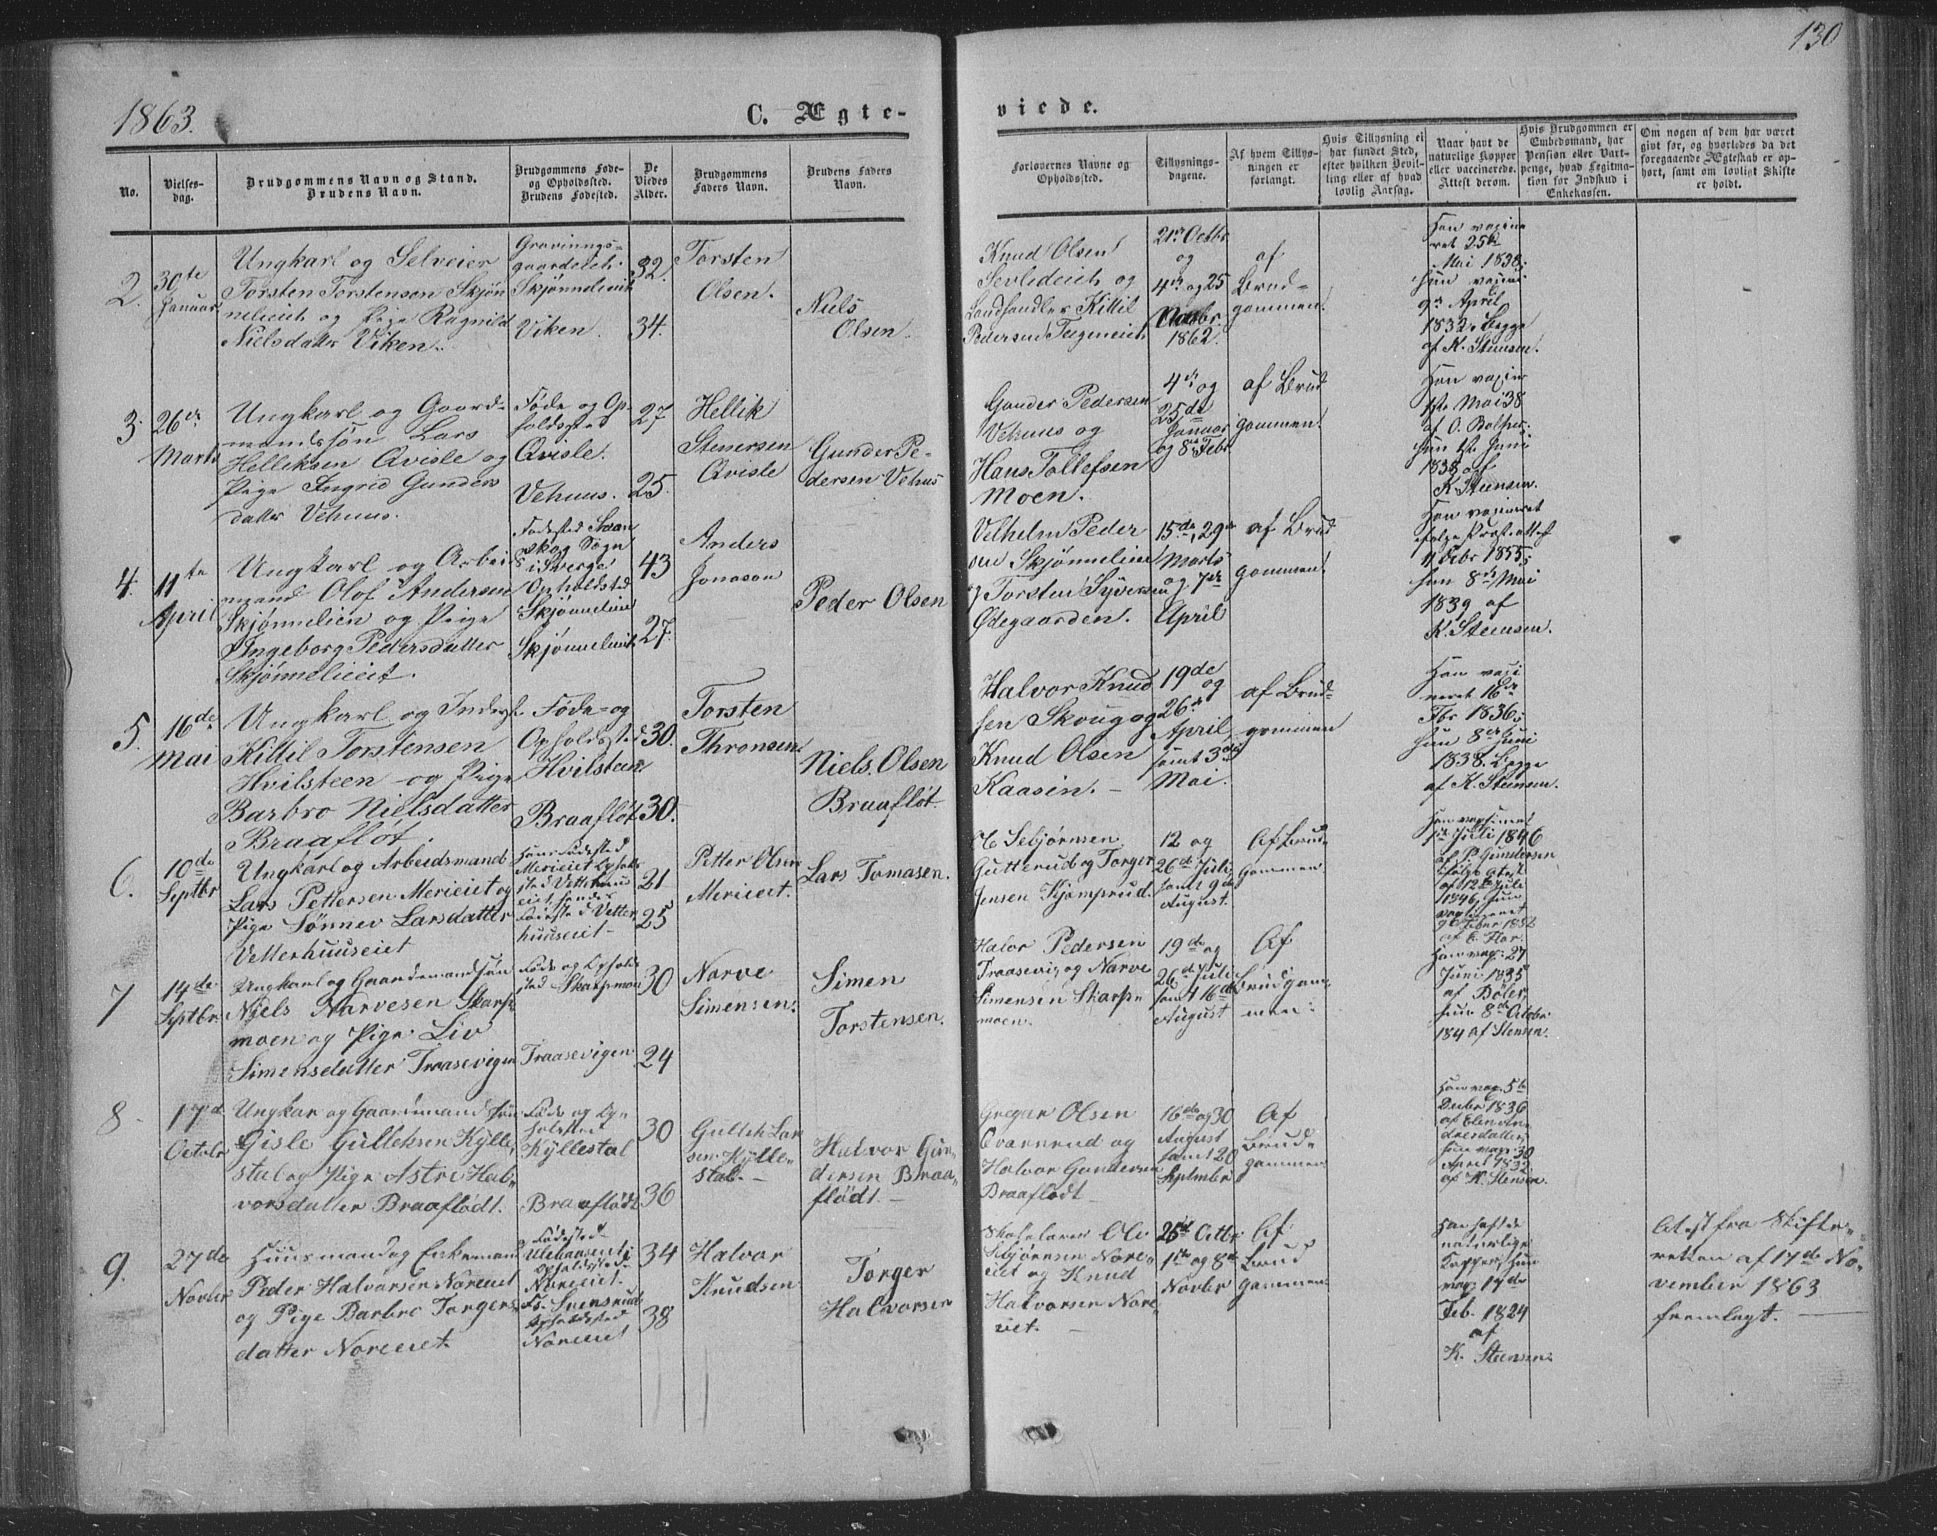 130
1863.
C. Ægte-
viede.
No.
Vielses-
dag.
Brudgommens Navn og Stand.
Brudens Navn.
Brudgommens Føde-
og Opholdssted.
Brudens Fødested.
De
Viedes
Alder.
Brudgommens
Faders Navn.
Brudens Faders
Navn.
Forlovernes Navne og
Opholdssted.
Tillysnings-
dagene.
Af hvem Tillys-
ningen er
forlangt.
Hvis Tillysning ei
har fundet Sted,
efter hvilken Bevil-
ling eller af hvad
lovlig Aarsag.
Naar havt de
naturlige Kopper
eller vaccinerede.
Attest derom.
Hvis Brudgommen er
Embedsmand, har
Pension eller Vart-
penge, hvad Legitima-
tion for Indskud i
Enkekassen.
Om nogen af dem har været
givt før, og hvorledes da det
foregaaende Ægteskab er op-
hørt, samt om lovligt Skifte
er holdt.
2.
30te
Januar
Ungkarl og Selveier
Torsten Torstensen Skjøn
nelieiet og Pige Ragnild
Nielsdatter Viken.
Skjønnelieiet
Viken.
32.
34.
Torsten
Olsen.
Niels
Olsen.
Knud Olsen
og
Landhandler Kittil
Pedersen
21de Octbr
og
4de og 25
Novbr
1862.
af
Brud-
gommen.
Han vaccine
ret 25de
Mai 1838;
hun vaccine
9de April
1832. Begge
af K. Steensen.
3.
26de
Marts
Ungkarl og Gaard-
mandssøn Lars
Helliksen Qvisle og
Pige Ingrid Gunders
datter Vehuus.
Føde og Op-
holdssted
Qvisle.
Vehuus.
27
25.
Hellik
Stenersen
Qvisle
Gunder Pe-
dersen Vehuus
Gunder Pedersen
Vehuus og
Hans Tollefsen
Moen.
4de og
25de
Januar
og 8de Febr
af Brud
gommen.
Han vaccine
1ste Mai 38
af O.
Hun 12 Juni
1838 af
K. Steensen.
4.
11te
April
Ungkarl og Arbei
mand Olof Andersen
Skjønnelien og Pige
Ingeborg Pedersdatter
Skjønnelieiet.
Fødested Svan
skog Sogn
i Sverge
Opholdsted
Skjønnelien
Skjønnelieiet
43
27.
Anders
Jonason
Peder Olsen
Velhelm Peder
sen Skjønnelien
og Torsten Syversen
Ødegaarden.
15de, 29de
Marts
og 7de
April
af Brud
gommen.
Han vaccineret
ifølge Præst. attest
11 Octbr 1855;
hun 8de Mai
1839 af
K. Steensen.
5.
16de
Mai
Ungkarl og Inderst
Kittil Torstensen
Hvilsteen og Pige
Barbro Nielsdatter
Braafløt.
Føde- og
Opholdssted
Hvilsteen
Braafløt
30.
30.
Torsten
Thronsen.
Niels Olsen
Braafløt.
Halvor Knud
sen Skoug og
Knud Olsen
Kaasin.
19de
og
26de
April,
samt 3de
Mai.
af Brud-
gommen
Han vacci
neret 16de
Fbr 1836;
hun 8de Juni
1838. Begge
af K. Steensen.
6.
10de
Septbr
Ungkarl og Arbeidsmand
Lars Pettersen Merieiet og
Pige Sønnev Larsdatter
Vetterhuuseiet
Hans Fødested
Merieiet Ophold-
sted Vetterhuus
eiet, hendes
Fødested Vetter-
huuseiet
21
25
Petter Olsen
Merieiet.
Lars Tomasen.
Gutterud og Torger
Jensen Kjomprud.
12 og
26de Juli
samt 9de
August.
Af Brud-
gommen
Han vaccineret
1ste Juli 1846
af P. Gundersen
ifølge attest
af 12te Juli
1846, hun
vaccineret
7
14de
Septbr
Ungkarl og Gaardmandssøn
Niels Narvesen Skarp
moen og Pige Liv
Simensdatter Traasevigen
Føde og Ophold-
sted Skarpmoen
Traasevigen
30
24
Narve
Simensen.
Simen
Torstensen.
Halvor Pedersen
Traasevig og Narve
Simensen Skarp-
moen.
19de og
26de Juli
samt 16de
August
Af
Brudgom-
men.
Han vac. 27
Juni 1835
af Bøler,
hun 8de Octobr
184 af Stensen.
8
17de
Octobr
Ungkar og Gaardmandssøn
Gisle Gulleksen Kylle-
stal og Pige Astri Hal-
vorsdatter Braaflødt.
Føde og Op-
holdsted
Kyllestal
Braaflødt
30
36
Gullek Lar
sen Kylle-
stal.
Halvor Gun-
dersen Braa-
flødt.
Gregar Olsen
Qvarnrud og
Halvor Gundersen
Braaflødt
16de og 30
August
samt 20
September
Af
Brud-
gommen
Han vac. 5te
Decbr 1836
af Elen An-
dresdatter,
hun vac. 30
April 1832
af K. Stensen.
9.
27de
Novbr
Huusmand og Enkemand
Peder Halvorsen Noreiet
og Pige Barbro Torgers
datter Noreiet.
Fødested
Opholdsted
Noreiet.
Fs. Svensrud
Opholdsted
Noreiet
34
38
Halvor
Knudsen
Torger
Halvorsen
Skolelærer Ole
Nore-
iet og Knud
Halvorsen Nore-
iet.
25de Octbr
1ste og 8de
Novbr
Af
Brud
gommen
Han haft de
naturlige
Kopper, hun
vac. 17de
Feb. 1824
af
K. Stensen.
Attest fra Skifte-
retten af 17de No-
vember 1863
fremlagt.